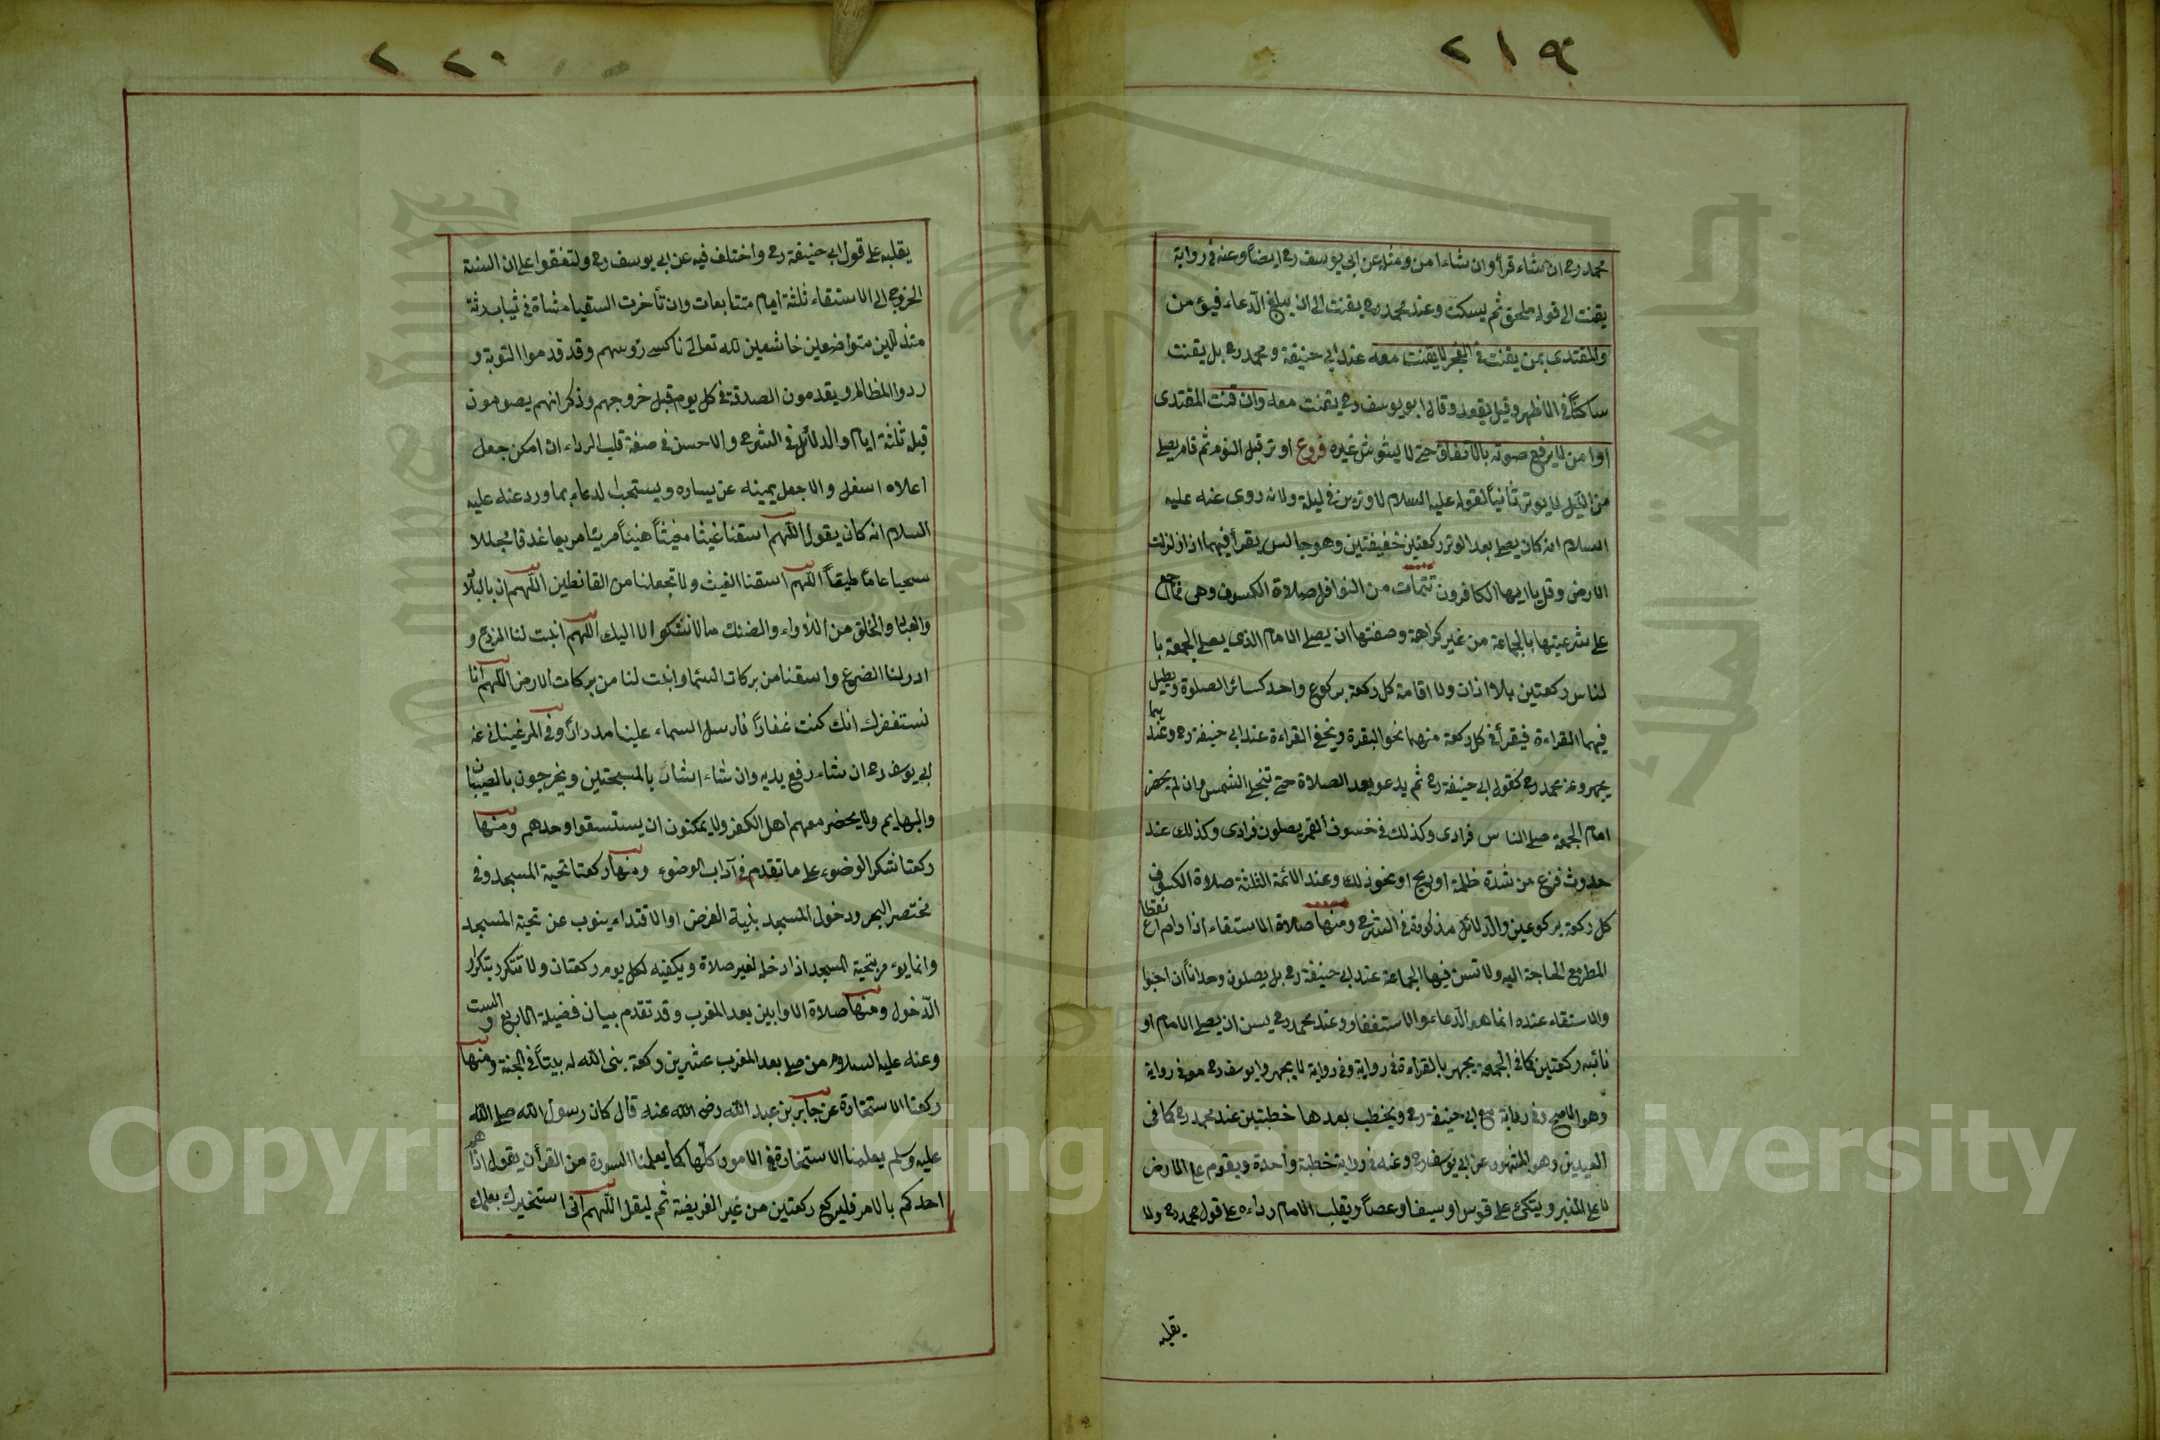 ٢١٩
محمد رح ان شاء قرأ وان شاء امن ومثله عن ابى يوسف رح ايضا وعنه فى رواية
يقنت الى قوله ملحق ثم يسكت وعند محمد رح يقنت الى ان يبلغ الدعاء فيؤمن
والمقتدى بمن يقنت فى الفجر لا يقنت معه عند ابى حنيفة ومحمد رح بل يقنت
ساكتًا فى الاظهر وقيل يقعد وقال ابو يوسف رح يقنت معه وان قنت المقتدى
او امن لا يرفع صوته بالاتفاق حتى لا يشوش غيره فروع اوتر قبل النوم ثم قام يصلى
من الليل لا يوتر ثانيًا لقوله عليه السلام لا وترين فى ليلة ولانه روى عنه عليه
السلام انه كان يصلى بعد الوتر ركعتين خفيفتين وهو جالس يقرأ فيهما اذا زلزلت
الارض وقل يا ايها الكافرون تتمات من النوافل صلاة الكسوف وهى مما اجمع
على شرعيتها بالجماعة من غير كراهة وصفتها ان يصلى الامام الذى يصلى الجمعة با
لناس ركعتين بلا اذان ولا اقامة كل ركعة بركوع واحد كسائر الصلوة ويطيل
فيهما القراءة فيقرأ فى كل ركعة منهما نحو البقرة ويخفى القراءة عند ابى حنيفة رح وعندهما
يجهر وعن محمد رح كقول ابى حنيفة رح ثم يدعو بعد الصلاة حتى تنجلى الشمس وان لم يحضر
امام الجمعة صلى الناس فرادى وكذلك فى خسوف القمر يصلون فرادى وكذلك عند
حدوث فزع من شدة ظلمة او ريح او نحو ذلك وعند الائمة الثلثة صلاة الكسوف
كل ركعة بركوعين والدلائل مذكورة فى الشرح ومنها صلاة الاستسقاء اذا دام انقطاع
المطر مع الحاجة اليه ولا تسن فيها الجماعة عند ابى حنيفة رح بل يصلون وحدانًا ان احبوا
والاستسقاء عنده انما هو الدعاء والاستغفار وعند محمد رح يسن ان يصلى الامام او
نائبه ركعتين كما فى الجمعة يجهر بالقراءة فى رواية وفى رواية لا يجهر وابو يوسف رح معه فى رواية
وهو الاصح وفى رواية مع ابى حنيفة رح ويخطب بعدها خطبتين عند محمد رح كما فى
العيدين وهو المشهور عن ابى يوسف رح وعنه فى رواية خطبة واحدة ويقوم على الارض
لا على المنبر ويتكئ على قوس او سيف او عصا ويقلب الامام رداءه على قول محمد رح ولا
يقلبه
٢٢٠
يقلبه على قول ابى حنيفة رح واختلف فيه عن ابى يوسف رح واتفقوا على ان السنة
الخروج الى الاستسقاء ثلثة ايام متتابعات وان تأخرت السقيا مشاة فى ثياب رثة
متذللين متواضعين خاشعين لله تعالى ناكسى رؤسهم وقد قدموا التوبة و
ردوا المظالم ويقدمون الصدقة فى كل يوم قبل خروجهم وذكر انهم يصومون
قبله ثلثة ايام والدلائل فى الشرح والاحسن فى صفة قلب الرداء ان امكن جعل
اعلاه اسفل والا جعل يمينه عن يساره ويستحب الدعاء بما ورد عنه عليه
السلام انه كان يقول اللهم اسقنا غيثا مغيثًا هنيئًا مريئا مريعا غدقا مجللا
سحيا عامًا طبقًا اللهم اسقنا الغيث ولا تجعلنا من القانطين اللهم ان بالبلاد
والعباد والخلق من اللأواء والضنك ما لا نشكوا الا اليك اللهم انبت لنا الزرع و
ادر لنا الضرع واسقنا من بركات السماء وانبت لنا من بركات الارض اللهم انا
نستغفرك انك كنت غفارًا فارسل السماء علينا مدرارًا وفى المرغينانى عن
ابى يوسف رح ان شاء رفع يديه وان شاء اشار بالمسبحتين ويخرجون بالصبيان
والبهايم ولا يحضر معهم اهل الكفر ولا يمكنون ان يستسقوا وحدهم ومنها
ركعتا شكر الوضوء على ما تقدم فى آداب الوضوء ومنها ركعتا تحية المسجد وفى
مختصر البحر ودخول المسجد بنية الفرض او الاقتداء ينوب عن تحية المسجد
وانما يؤمر بتحية المسجد اذا دخله لغير صلاة ويكفيه لكل يوم ركعتان ولا تتكرر بتكرار
الدخول ومنها صلاة الاوابين بعد المغرب وقد تقدم بيان فضيلة الاربع والست
وعنه عليه السلام من صلى بعد المغرب عشرين ركعة بنى الله له بيتًا فى الجنة ومنها
ركعتا الاستخارة عن جابر بن عبد الله رضى الله عنه قال كان رسول الله صلى الله
عليه وسلم يعلمنا الاستخارة فى الامور كلها كما يعلمنا السورة من القرأن يقول اذا هم
احدكم بالامر فليركع ركعتين من غير الفريضة ثم ليقل اللهم انى استخيرك بعلمك
Copyright © King Saud University